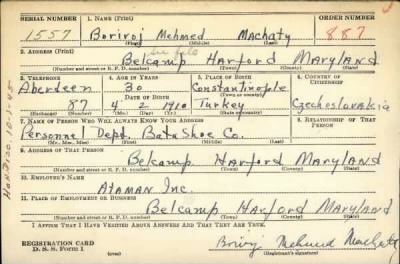 SERIAL NUMBER 1. NAME (Print) ORDER NUMBER
1557 Borivoj Mehmed Machaty 887
(First) (Middle) (Last)
2. ADDRESS (Print)
Belcamp Harford Maryland
(Number and street or R. F. D. number) (Town) (County) (State)
3. TELEPHONE 4. AGE IN YEARS 5. PLACE OF BIRTH 6. COUNTRY OF CITIZENSHIP
Aberdeen 30 Constantinople
(Exchange) DATE OF BIRTH (Town or county)
87 4 2 1910 Turkey Czechoslovakia
(Number) (Mo.) (Day) (Yr.) (State or country)
7. NAME OF PERSON WHO WILL ALWAYS KNOW YOUR ADDRESS 8. RELATIONSHIP OF THAT PERSON
Personnel Dept. Bata Shoe Co.
(Mr., Mrs., Miss) (First) (Middle) (Last)
9. ADDRESS OF THAT PERSON
Belcamp Harford Maryland
(Number and street or R. F. D. number) (Town) (County) (State)
10. EMPLOYER'S NAME
Ataman Inc.
11. PLACE OF EMPLOYMENT OR BUSINESS
Belcamp Harford Maryland
(Number and street or R. F. D. number) (Town) (County) (State)
I AFFIRM THAT I HAVE VERIFIED ABOVE ANSWERS AND THAT THEY ARE TRUE.
REGISTRATION CARD
D. S. S. Form 1 (over) Borivoj Mehmed Machaty
(Registrant's signature)